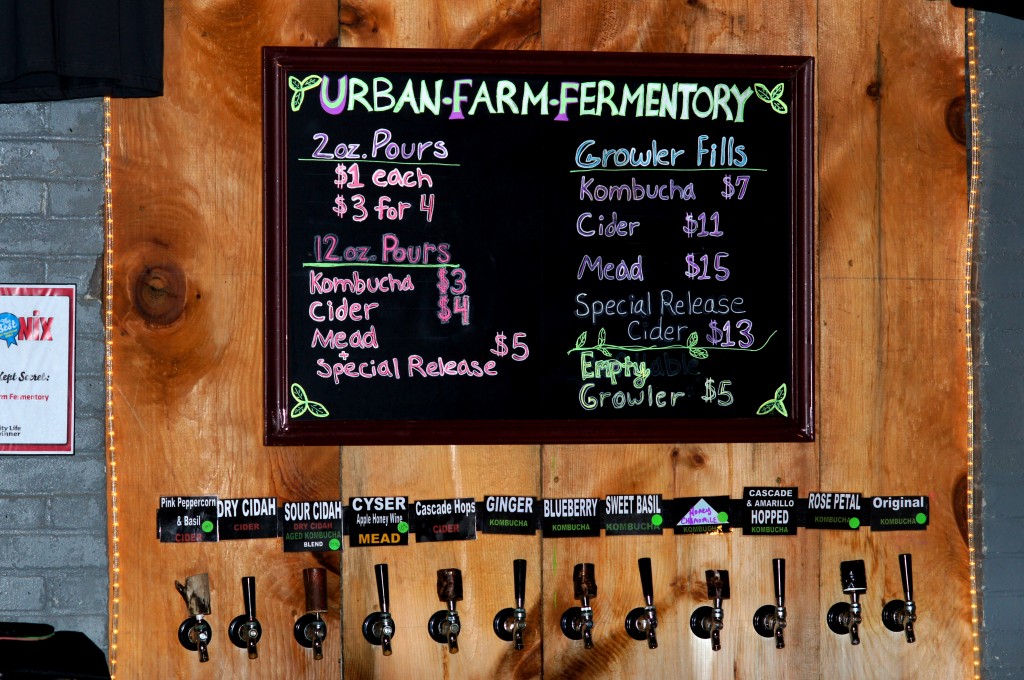 URBAN-FARM-FERMENTORY
2oz. Pours
$1 each
$3 for 4
12oz. Pours
Kombucha $3
Cider $4
Mead
+
Special Release $5
Growler Fills
Kombucha $7
Cider $11
Mead $15
Special Release
Cider $13
Empty
Growler $5
The
Best
NIX
Kept Secret:
rm Fermentory
ity Life
inner
Pink Peppercorn
& Basil
CIDER
DRY CIDAH
CIDER
SOUR CIDAH
DRY CIDAH
AGED KOMBUCHA
BLEND
CYSER
Apple Honey Wine
MEAD
Cascade Hops
CIDER
GINGER
KOMBUCHA
BLUEBERRY
KOMBUCHA
SWEET BASIL
KOMBUCHA
Honey
Chamomile
KOMBUCHA
CASCADE
& AMARILLO
HOPPED
KOMBUCHA
ROSE PETAL
KOMBUCHA
Original
KOMBUCHA